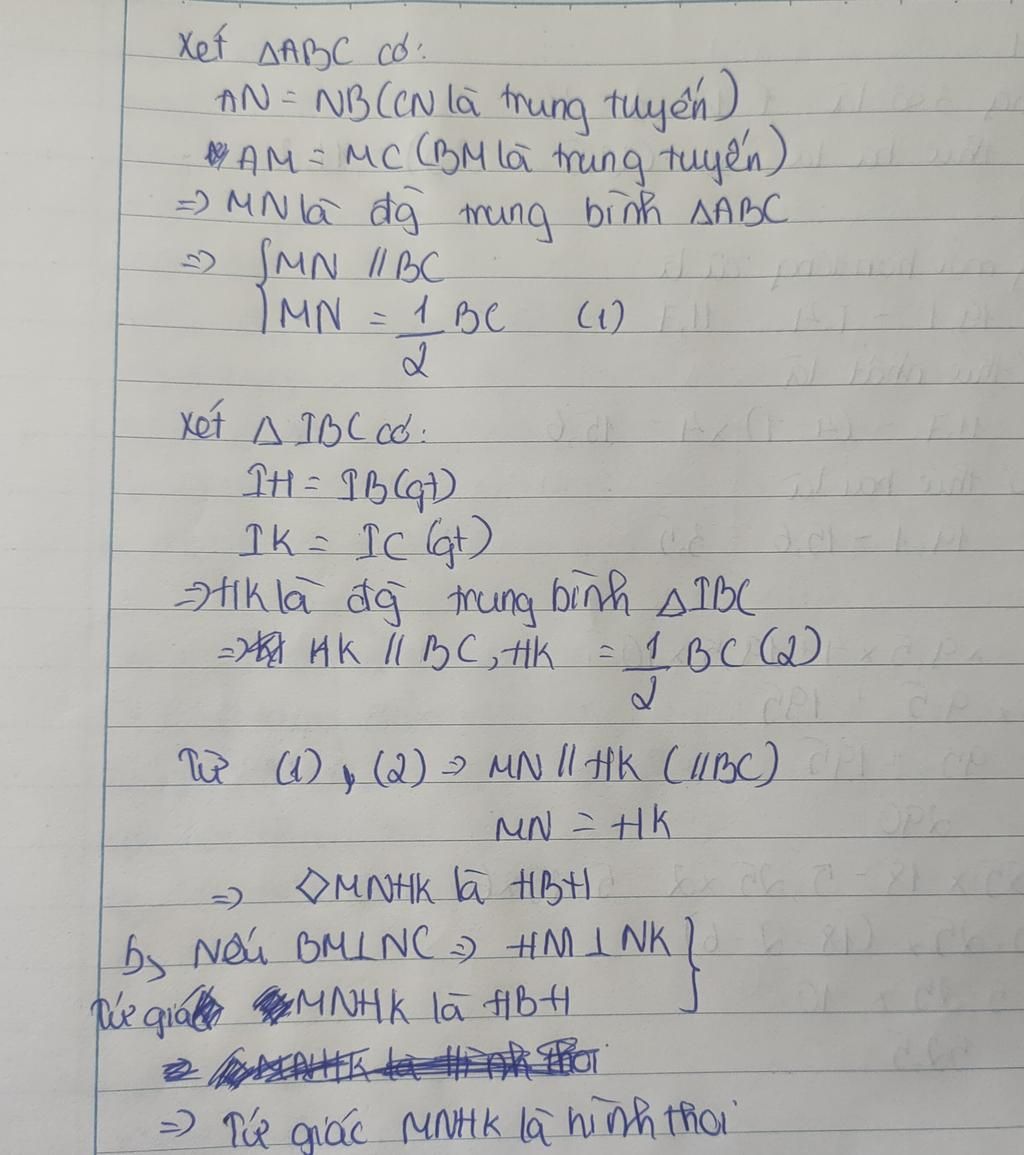 Xét △ABC có:
AN = NB (CN là trung tuyến)
AM = MC (BM là trung tuyến)
=> MN là đg̀ trung bình △ABC
=> { MN // BC
MN = 1/2 BC (1)
Xét △ IBC có:
IH = IB (gt)
IK = IC (gt)
=> HK là đg̀ trung bình △IBC
=> HK // BC, HK = 1/2 BC (2)
Từ (1), (2) => MN // HK (//BC)
MN = HK
=> ◇MNHK là HBH
b, Nếu BM⊥NC => HM⊥NK }
Tứ giác MNHK là HBH
=> Tứ giác MNHK là hình thoi